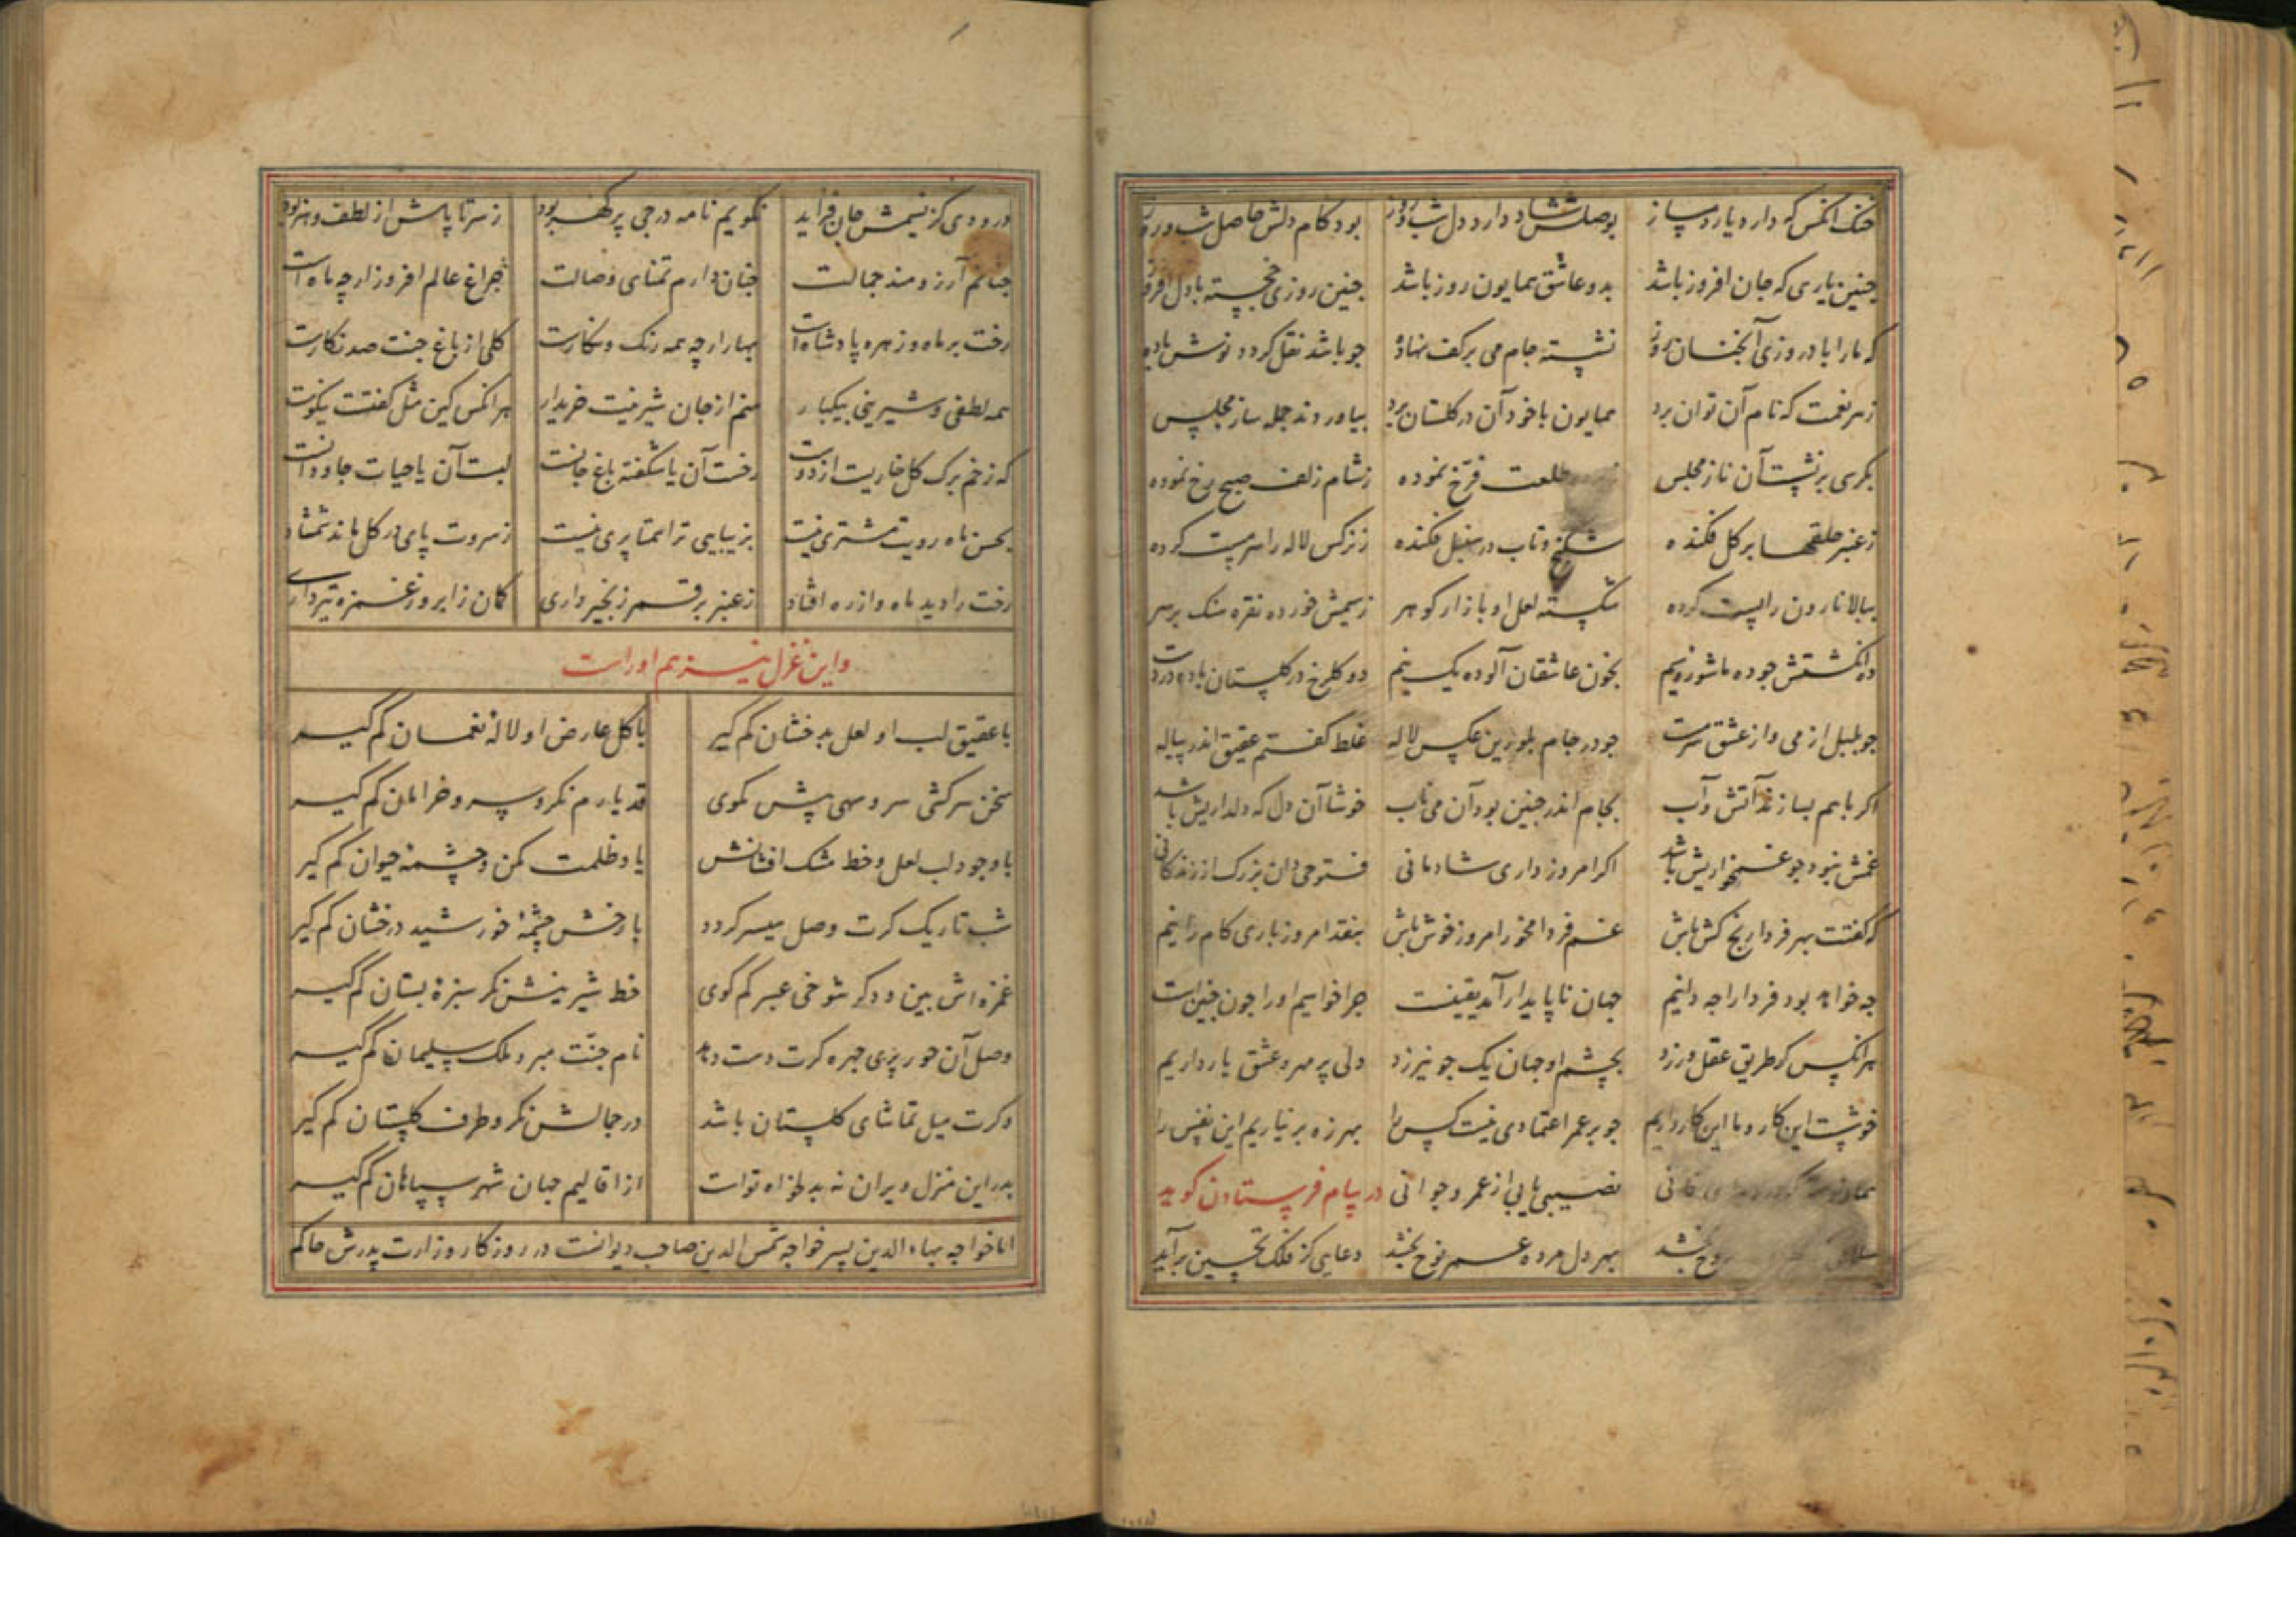 خنک انکس که دارد یار دمساز بوصلش شاد دارد دل شب و روز بود کام دلش حاصل شب و روز
چنین یاری که جان افروز باشد بدو عاشق همایون روز باشد چنین روزی خجسته با دل افروز
که مارا باد روزی آنچنان روز نشسته جام می برکف نهاده چو باشد نقل کردد نوش باده
زهر نعمت که نام آن توان برد همایون با خود آن در کلستان برد بیاوردند جمله ساز مجلس
بکرسی برنشست آن ناز مجلس طلعت فرخ نموده زشام زلف صبح رخ نموده
زعنبر حلقها بر کل فکنده شکنج و تاب در سنبل فکنده زنرکس لاله را سرمست کرده
ببالا نارون را پست کرده شکسته لعل او بازار کوهر زسیمش خورده نقره سنک بر سر
ده انکشتش چو ده ماشوره سیم بخون عاشقان آلوده یک نیم دو کلرخ در کلستان باده در دست
چو بلبل از می و از عشق سرمست چو در جام بلورین عکس لاله غلط کفتم عقیق اندر پیاله
اکر باهم بسازند آتش و آب بجام اندر چنین بود آن می ناب خوشا آن دل که دلداریش باشد
غمش نبود چو غمخواریش باشد اکر امروز داری شادمانی فتوحی دان بزرک از زندکانی
که کفتت بهر فردا رنج کش باش غم فردا مخور امروز خوش باش بنقد امروز باری کام رانیم
چه خواهد بود فردا را چه دانیم جهان ناپایدار آمد یقینت چرا خواهیم او را چون چنین است
هر انکس کو طریق عقل ورزد بچشم او جهان یک جو نیرزد دلی پر مهر و عشق یار داریم
خوشست این کار و ما این کار داریم چو بر عمر اعتمادی نیست کس را بهرزه برنیاریم این نفس را
فانی نصیبی یابی از عمر و جوانی در پیام فرستادن کوید
روح بخشد بهر دل مرده عمر نوح بخشد دعایی کز فلک تحسین برآید
درودی کز نسیمش جان فزاید نکویم نامه درجی پر کهر بود زسر تا پاش از لطف و هنر بود
چنانم آرزومند جمالت چنان دارم تمنای وصالت چراغ عالم افروز ارچه ماه است
رخت بر ماه و زهره پادشاه است بهار ارچه همه رنک و نکارست کلی از باغ حسنت صد نکارست
همه لطفی و شیرینی بیکبار منم از جان شیرینت خریدار هر انکس کین مثل کفتست نیکوست
که زخم برک کل خاریست از دوست رخست آن یا شکفته باغ جانست لبست آن یا حیات جاودانست
بحسن ماه رویت مشتری نیست بزیبایی ترا همتا پری نیست زسروت پای در کل ماند شمشاد
رخت را دید ماه و از ره افتاد زعنبر بر قمر زنجیر داری کمان زابرو زغمزه تیر داری
واین غزل نیز هم اوراست
با عقیق لب او لعل بدخشان کم کیر با کل عارض او لاله نعمان کم کیر
سخن سرکشی سرو سهی پیش مکوی قد یارم نکر و سرو خرامان کم کیر
با وجود لب لعل و خط مشک افشانش یاد ظلمت مکن و چشمه حیوان کم کیر
شب تاریک کرت وصل میسر کردد با رخش چشمه خورشید درخشان کم کیر
غمزه اش بین و دکر شوخی عبهر کم کوی خط شیرینش نکر سبزه بستان کم کیر
وصل آن حور پری چهره کرت دست دهد نام جنت مبر و ملک سلیمان کم کیر
وکرت میل تماشای کلستان باشد در جمالش نکر و طرف کلستان کم کیر
بدر این منزل ویران نه بدلخواه تواست از اقالیم جهان شهر سپاهان کم کیر
اما خواجه بهاء الدین پسر خواجه شمس الدین صاحب دیوانست در روزکار وزارت پدرش حاکم